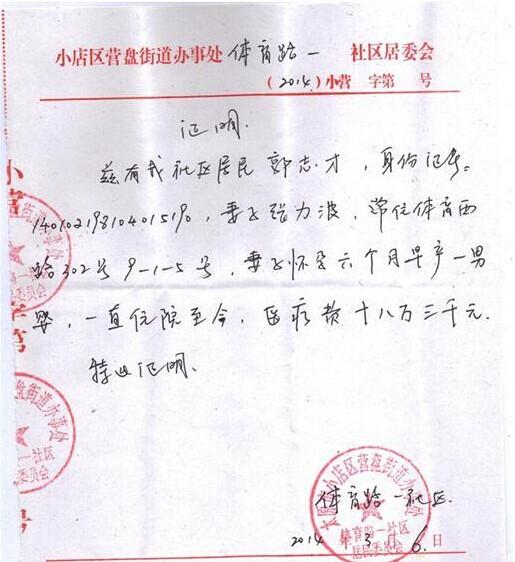 小店区营盘街道办事处 体育路一 社区居委会
（2014）小营 字第 号
证明
兹有我社区居民郭志才，身份证号：
140102198104015190，妻子张力波，常住体育西
路302号9-1-5号，妻子怀孕六个月早产一男
婴，一直住院至今，医疗费十八万三千元。
特此证明。
体育路一社区
2014年3月6日
小营
字第
号
盘街道办事处
一社区
委员会
小店区营盘街道办事处
体育路一社区
居民委员会